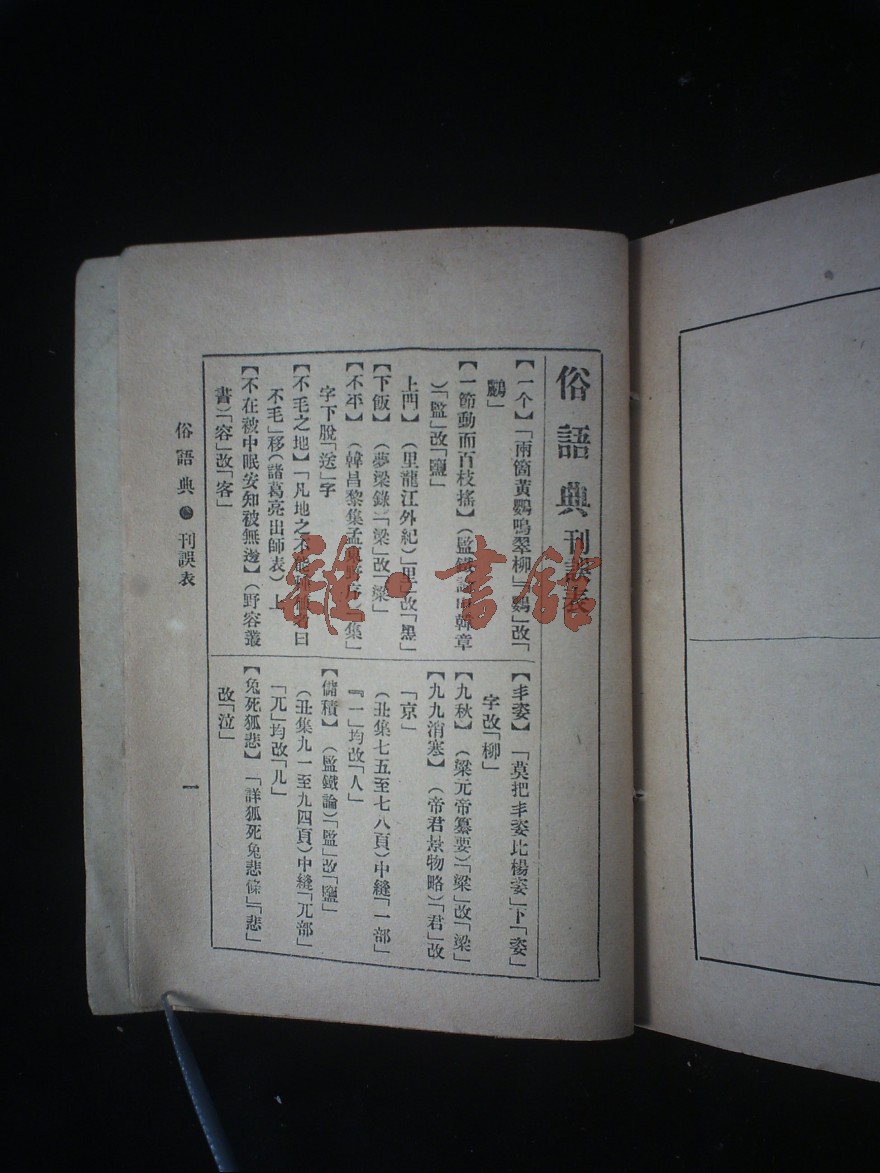 俗語典刊誤表
【一个】「兩箇黃鸚鳴翠柳」「鸚」改「
鸝」
【一節動而百枝搖】(監鐵論
韓章
)「監」改「鹽」
上門】(里龍江外紀)「里」改「黑」
【下飯】(夢梁錄)「梁」改「粱」
【不平】(韓昌黎集孟東野
集」
字下脫「送」字
【不毛之地】「凡地之不能
者曰
不毛」移(諸葛亮出師表)上
【不在被中眠安知被無邊】(野容叢
書)「容」改「客」
【丰姿】「莫把丰姿比楊姿」下「姿」
字改「柳」
【九秋】(粱元帝纂要)「粱」改「梁」
【九九消寒】(帝君景物略)「君」改
「京」
(丑集七五至七八頁)中縫「一部」
「一」均改「人」
【儲積】(監鐵論)「監」改「鹽」
(丑集九一至九四頁)中縫「兀部」
「兀」均改「儿」
【兔死狐悲】「詳狐死兔悲條」「悲」
改「泣」
俗語典 刊誤表
一
雜·書館